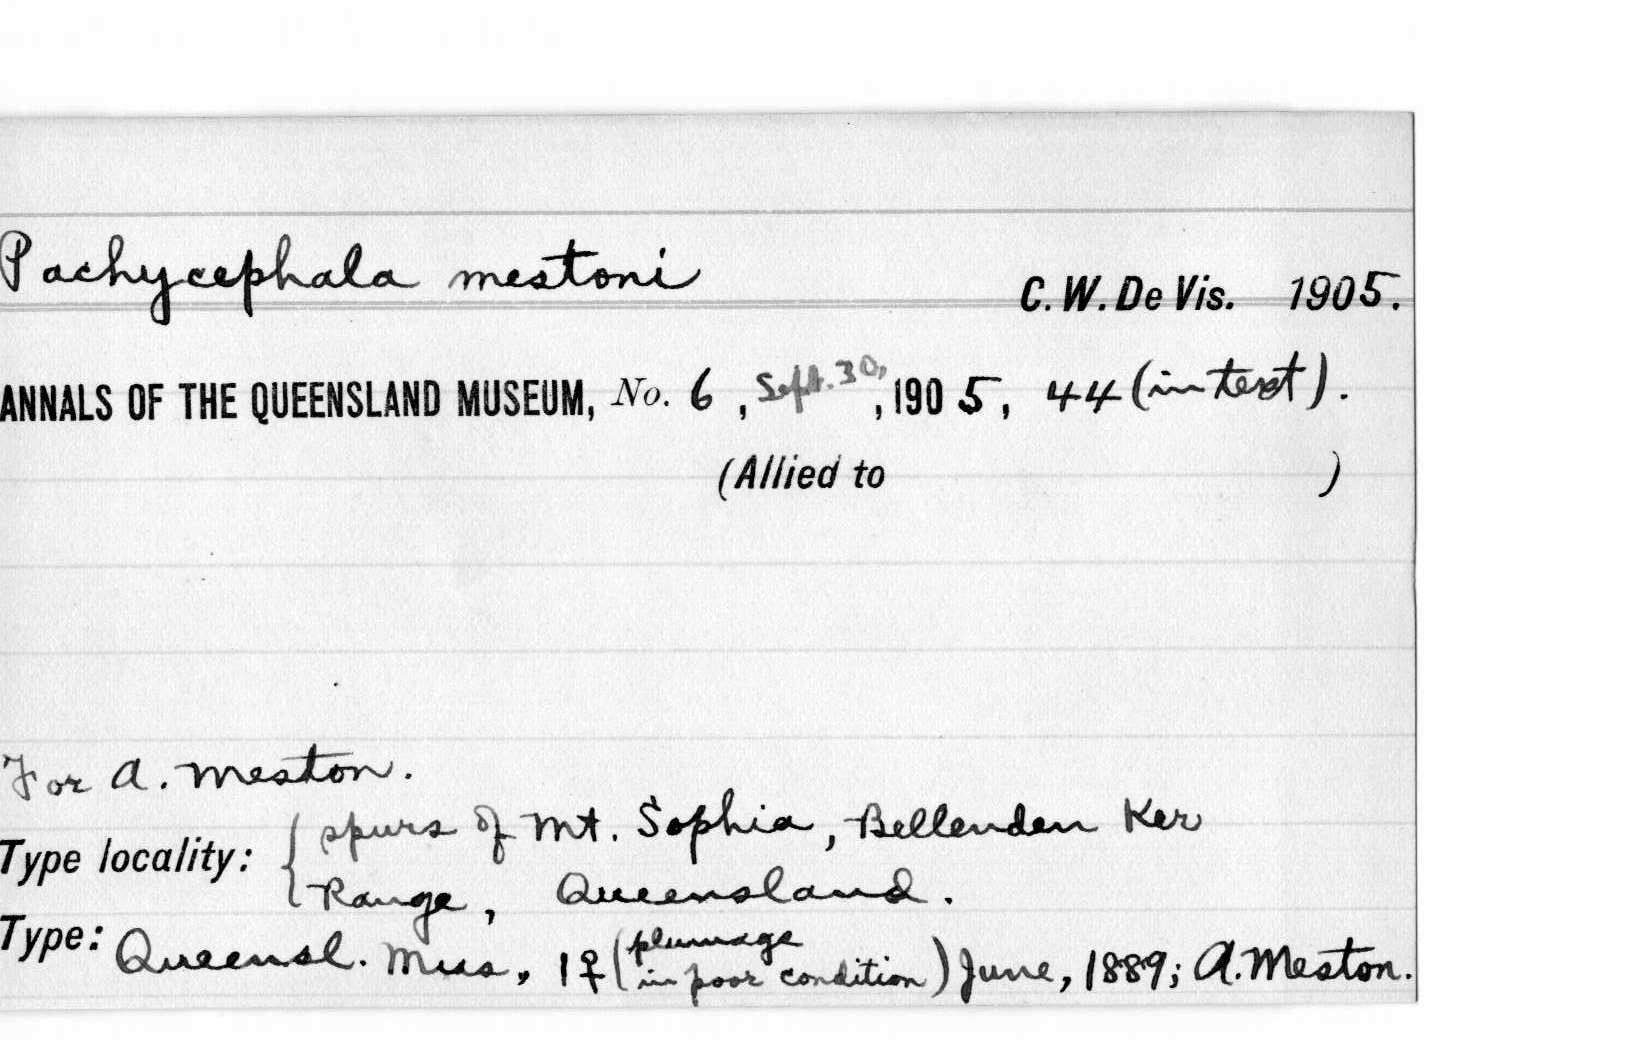 Pachycephala mestoni
C. W. De Vis. 1905.
ANNALS OF THE QUEENSLAND MUSEUM, No. 6, Sept. 30, 1905, 44 (in text).
(Allied to )
For A. Meston.
Type locality: { spurs of Mt. Sophia, Bellenden Ker
Range, Queensland.
Type: Queensl. Mus., 1♀ (plumage in poor condition) June, 1889; A. Meston.